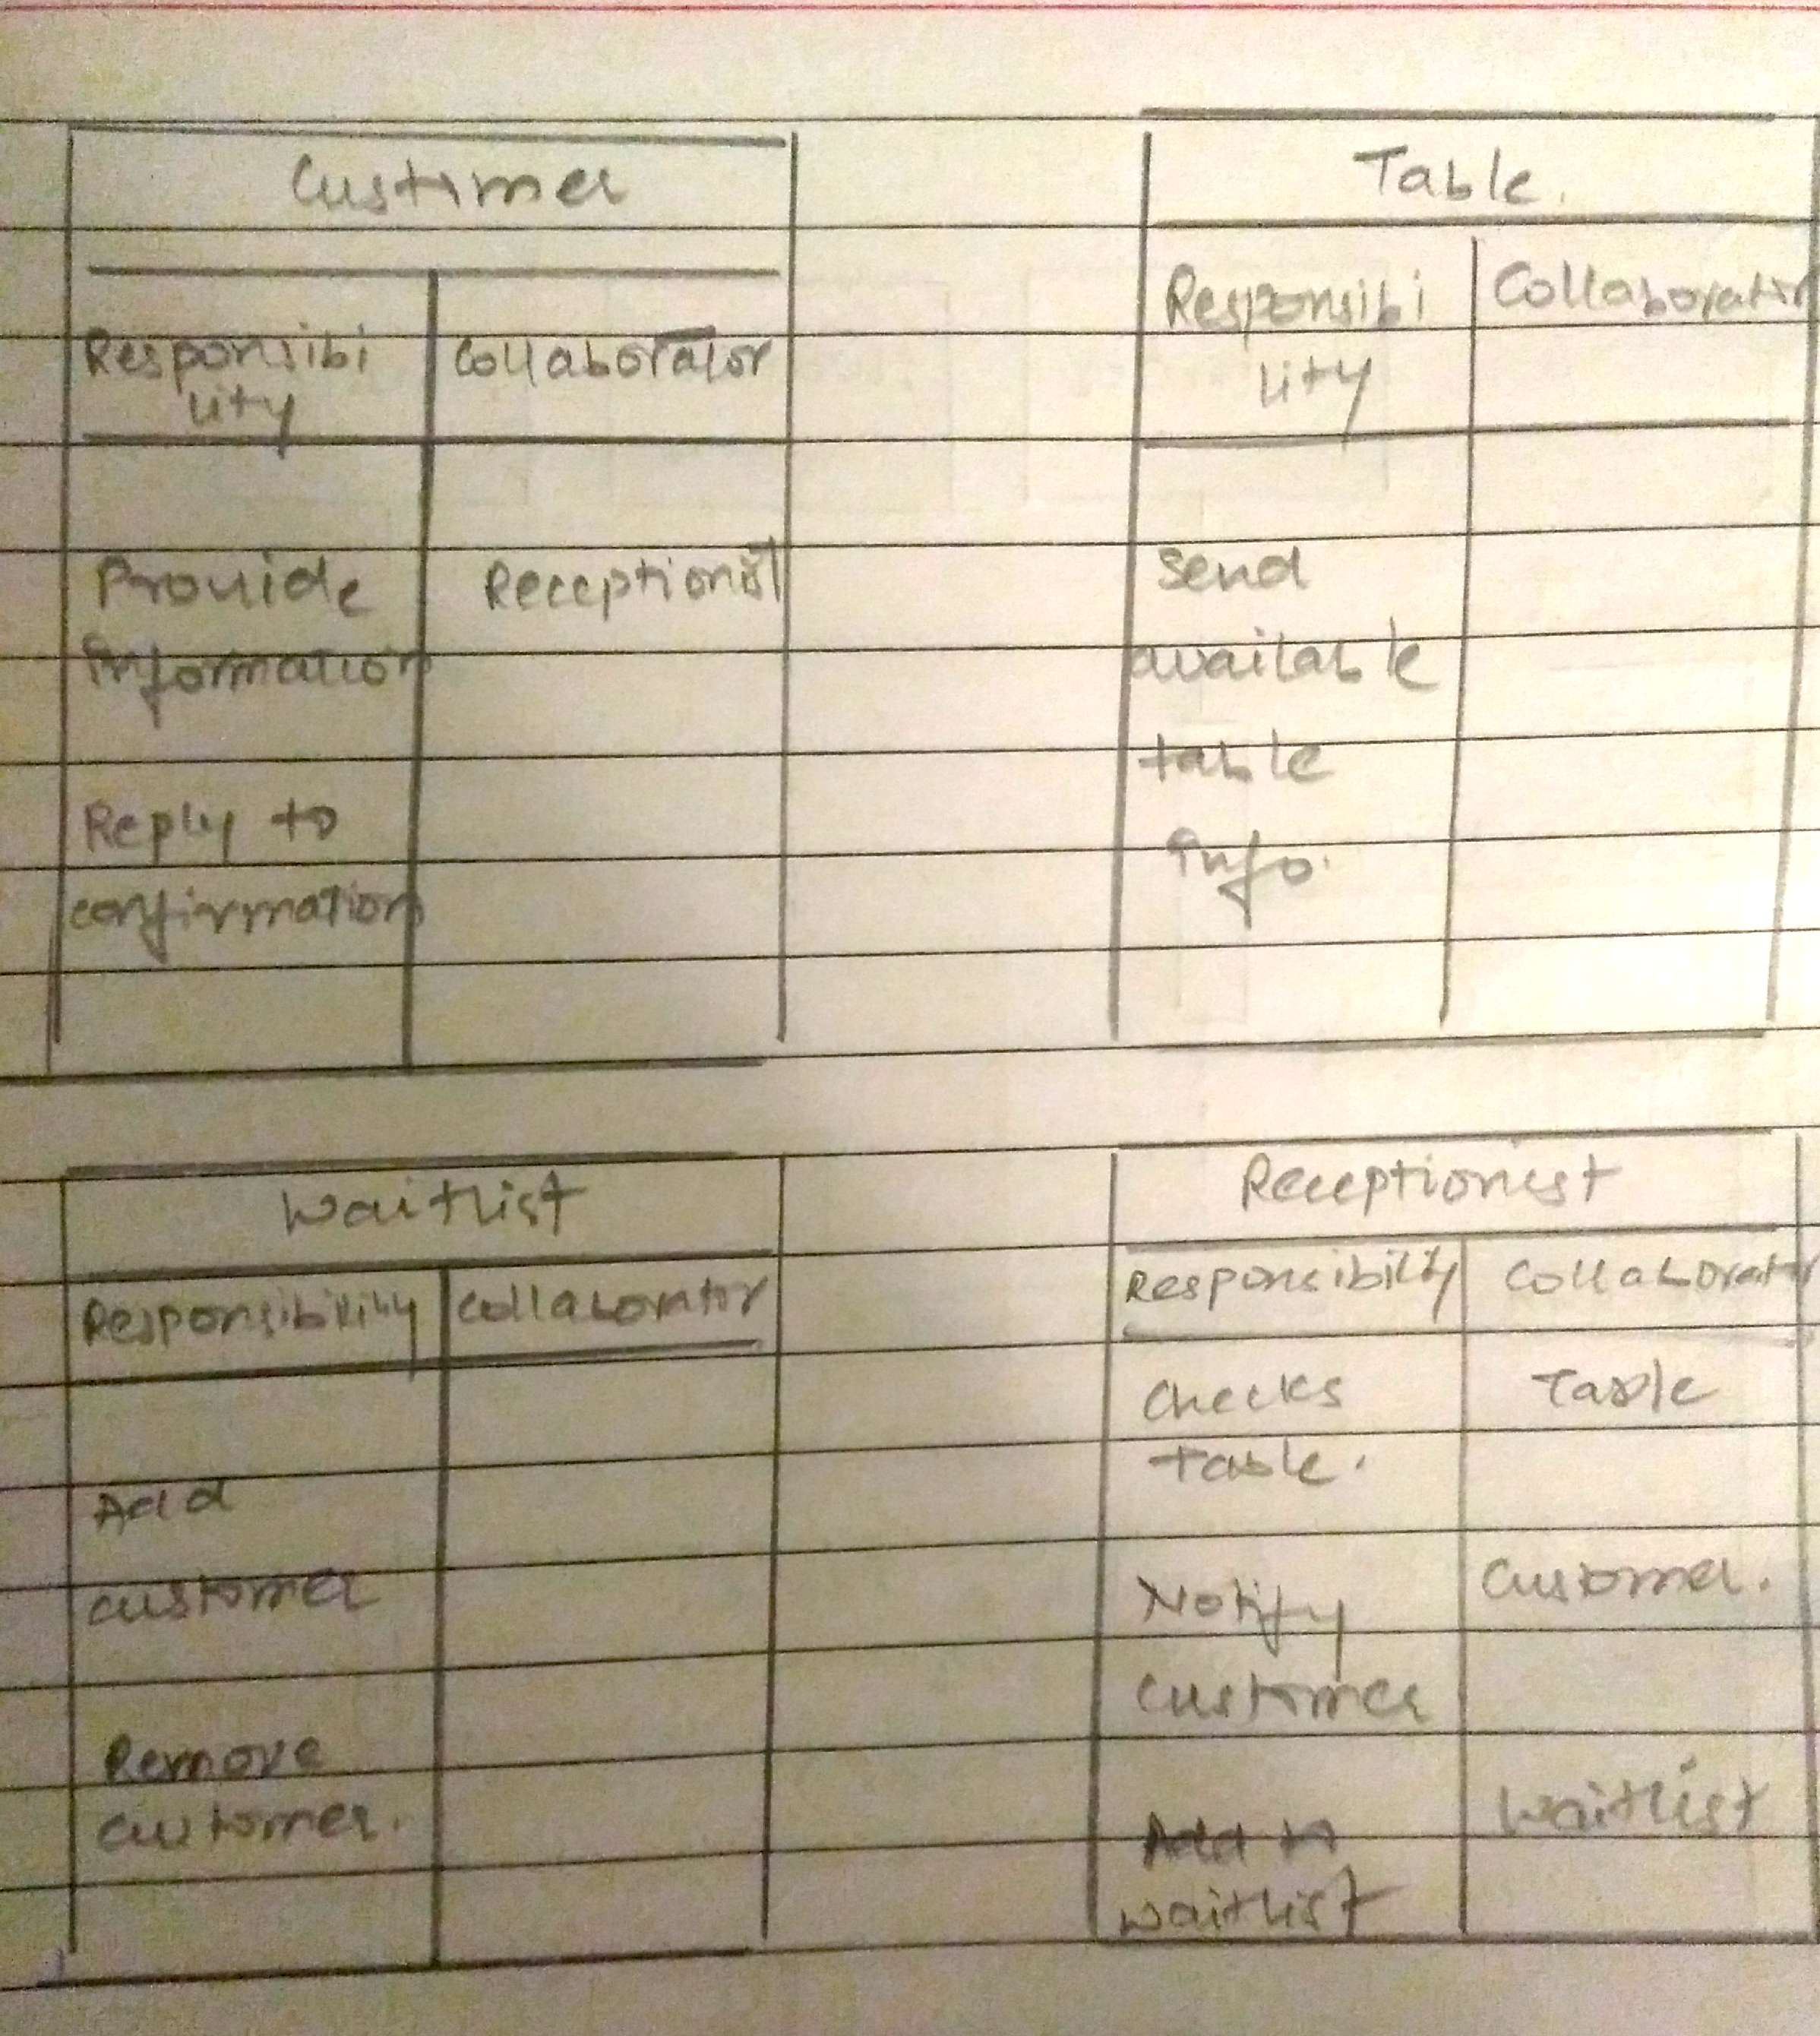 Customer
Responsibi
lity
Collaborator
Provide
Information
Receptionist
Reply to
confirmation
Table.
Responsibi
lity
Collaborator
send
available
table
info.
Waitlist
Responsibility
Collaborator
Add
customer
Remove
customer.
Receptionist
Responsibility
Collaborator
Checks
Table
table.
Notify
customer
Customer.
Add to
waitlist
Waitlist